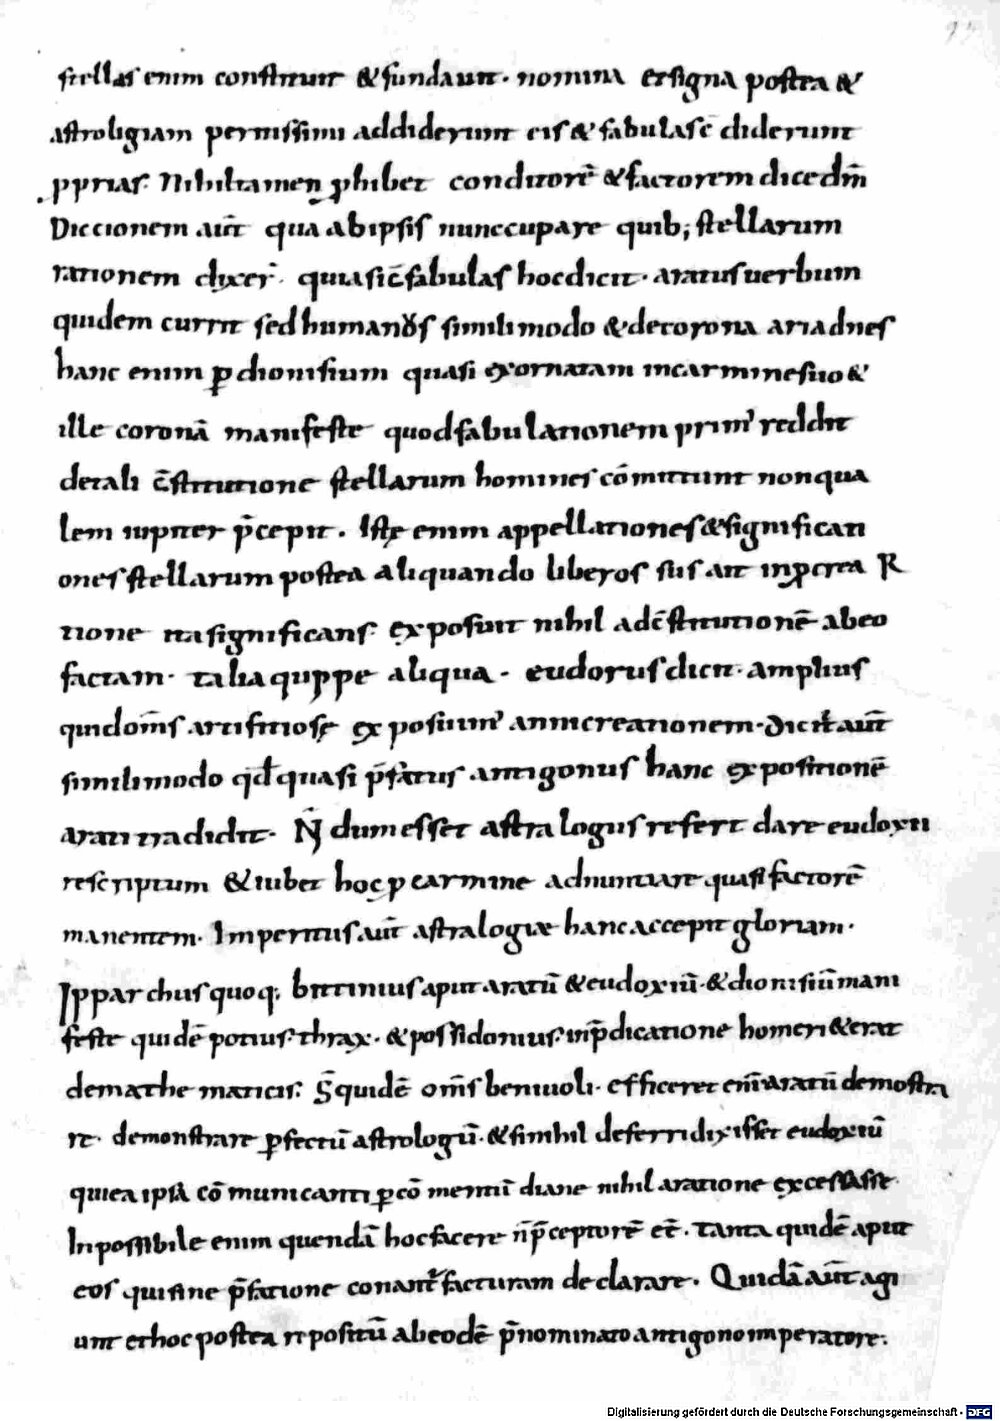 stellas enim constituit & fundauit. nomina et signa postea &
astroligiam peritissimi addiderunt eis & fabulas c̄diderunt
pprias. Nihil tamen phibet conditorē & factorem dicedm̄
Diccionem aut̄ qua ab ipsis nunccupare quib; stellarum
rationem dixer̄. quia sic̄ fabulas hoc dicit. aratus uerbum
quidem currit sed humanos simili modo & de corona ariadnes
hanc enim p dionisium quasi exornatam in carmine suo &
ille coronā manifeste quod fabulationem prim' reddit
de tali c̄stitutione stellarum homines cōmittunt non qua
lem iupiter p̄cepit. Istę enim appellationes & significati
ones stellarum postea aliquando liberos suis ait in pcrea R
tione ita significans. exposuit nihil ad c̄stitutionē ab eo
factam. talia quippe aliqua. eudorus dicit. amplius
quid om̄s artifitiosę ex posuim' anni creationem. dicit̄ aut̄
simili modo qd̄ quasi p̄fatus antigonus hanc expositionē
arati tradidit. N̄ dum esset astralogus refert dare eudoxii
rescriptum & iubet hoc p carmine adnuntiare quasi factorē
manentem. Imperitus aut̄ astralogiæ hanc accepit gloriam.
Ipparchus quoq; bitinius aput aratū & eudoxiū. & dionisiū mani
feste quidē potius. thrax. & possidonius. in p̄dicatione homeri & erat
de mathematicis. S̄ quidē om̄s beniuoli. efficeret eni aratū demostra
re. demonstrare pfectū astrologū. & simihil deferri dixisset eudoxiū
qui ea ipsā cōmunicanti p cōmentū diane nihil a ratione excessisse.
Inpossibile enim quendā hoc facere n̄ p̄ceptorē eē. tanta quidē aput
eos qui sine p̄fatione conant̄ facturam declarare. Quidā aut̄ agi
unt et hoc postea repositū ab eodē p̄nominato antigono imperatore.
Digitalisierung gefördert durch die Deutsche Forschungsgemeinschaft - DFG